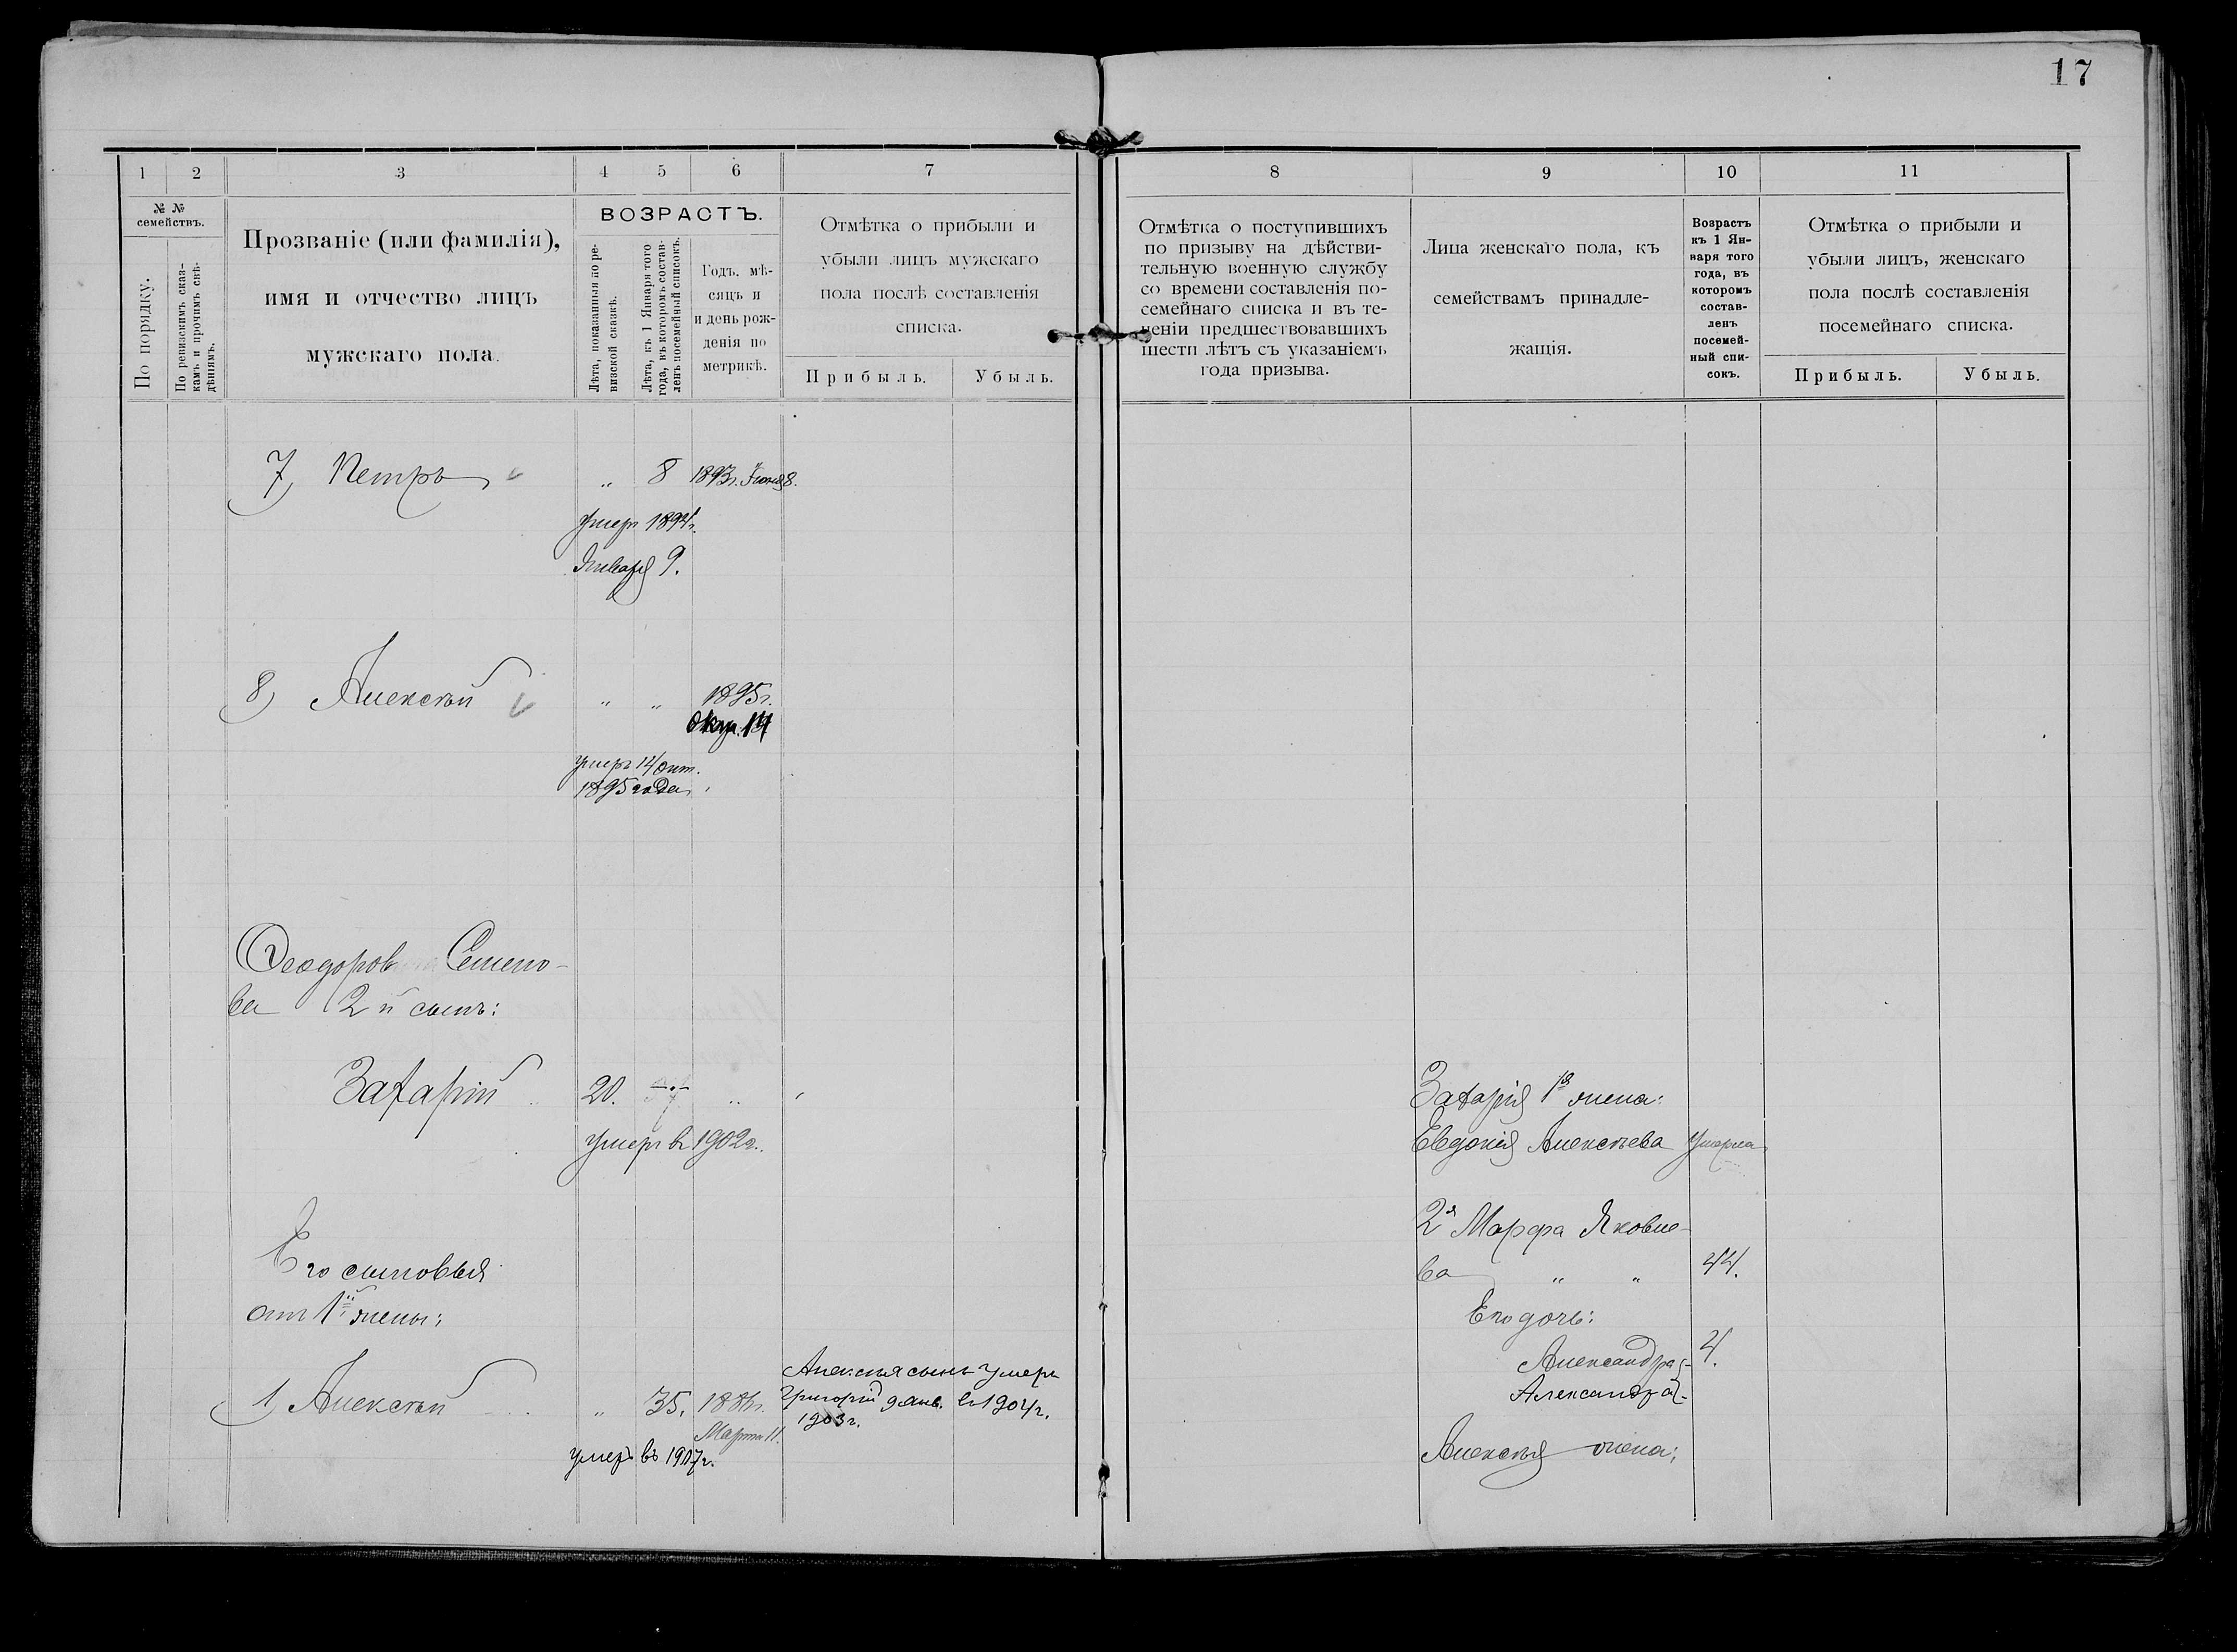 17
1 2 3 4 5 6 7
№ № семействъ.
По порядку.
По ревизскимъ сказ-
камъ и прочимъ свѣ-
дѣніямъ.
Прозваніе (или фамилія),
имя и отчество лицъ
мужскаго пола.
ВОЗРАСТЪ.
Лѣта, показанныя по ре-
визской сказкѣ.
Лѣта, къ 1 Января того
года, въ которомъ состав-
ленъ посемейный списокъ.
Годъ, мѣ-
сяцъ и
и день рож-
денія по
метрикѣ.
Отмѣтка о прибыли и
убыли лицъ мужскаго
пола послѣ составленія
списка.
Прибыль. Убыль.
7) Петръ " 8 1893г. Іюня 8.
умеръ 1894г.
Января 9.
8) Алексѣй " " 1895г.
Окт. 14
умеръ 14 Окт.
1895 года
Ѳеодоров Семено-
ва 2й сынъ:
Захарій 20. "
умеръ в 1902г.
Его сыновья
отъ 1й жены:
1) Алексѣй " 35. 188 г.
Марта 11.
умеръ въ 1907г.
Алексѣя сынъ умеръ
Григорій 9 Янв. въ 1904г.
1903г.
8 9 10 11
Отмѣтка о поступившихъ
по призыву на дѣйстви-
тельную военную службу
со времени составленія по-
семейнаго списка и въ те-
ченіи предшествовавшихъ
шести лѣтъ съ указаніемъ
года призыва.
Лица женскаго пола, къ
семействамъ принадле-
жащія.
Возрастъ
къ 1 Ян-
варя того
года, въ
которомъ
состав-
ленъ
посемей-
ный спи-
сокъ.
Отмѣтка о прибыли и
убыли лицъ, женскаго
пола послѣ составленія
посемейнаго списка.
Прибыль. Убыль.
Захарія 1я жена:
Евдокія Алексѣева умерла
2я Марфа Яковле-
ва " " 44.
Его дочь:
Александра 4.
Александра
Алексѣя жена: